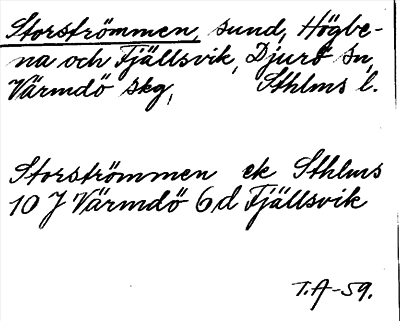 Storströmmen, sund, Högbe-
na och Fjällsvik, Djurö sn,
Värmdö skg, Sthlms l.
Storströmmen ek Sthlms
10 J Värmdö 6 d Fjällsvik
T.A-59.